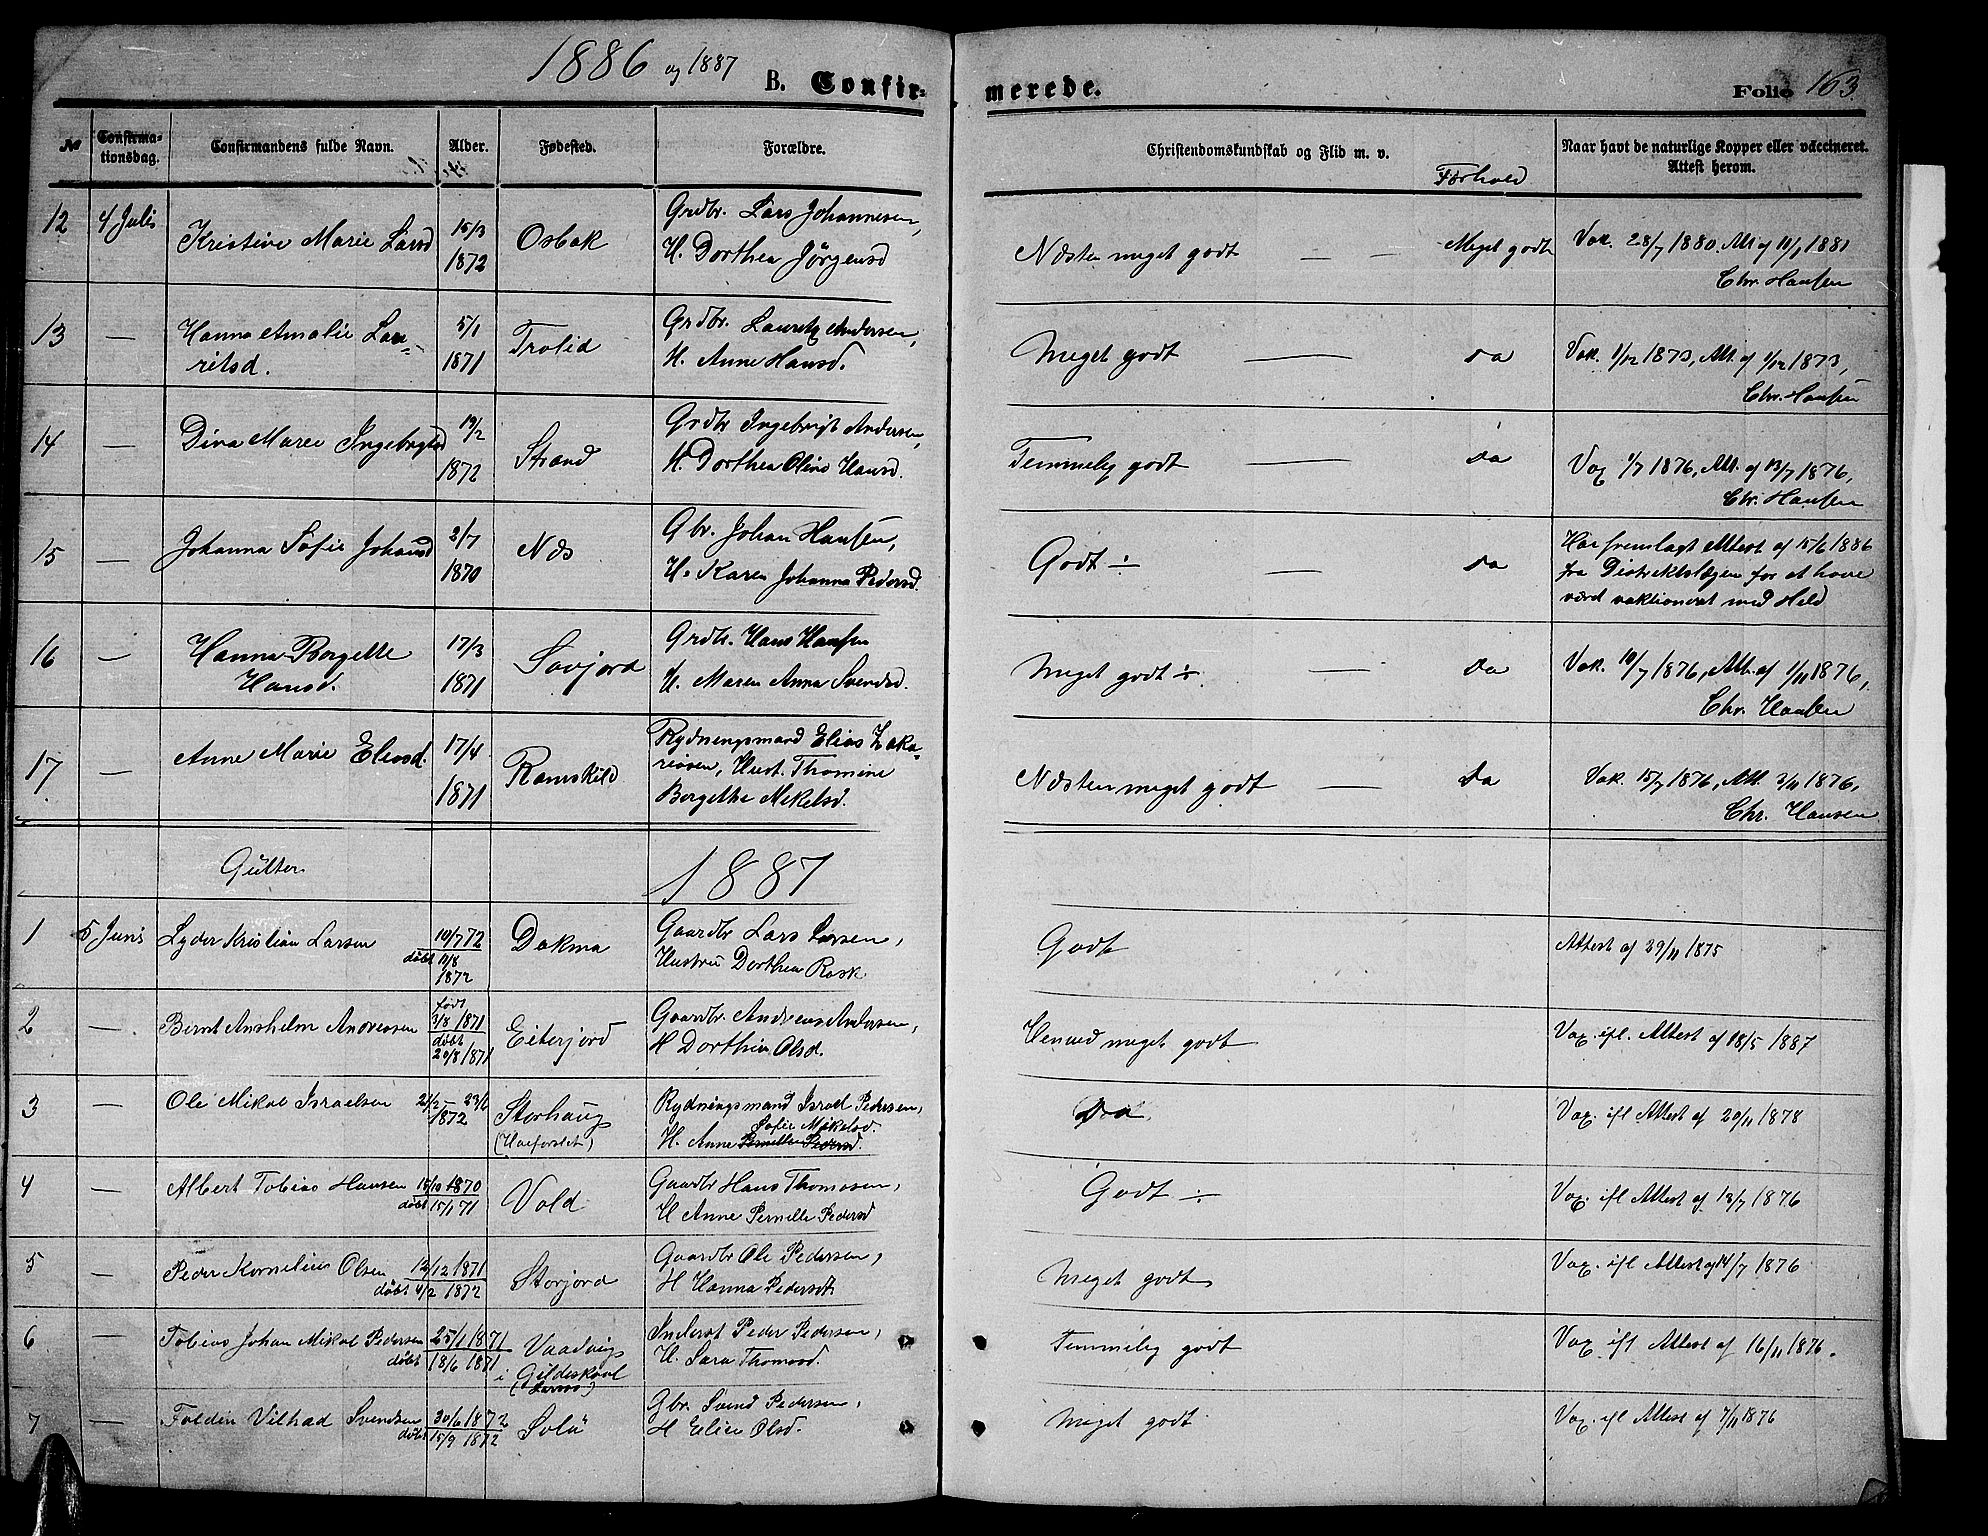 1886 og 1887
B. Confirmerede.
Folio 163.
No
Confirmationsdag.
Confirmandens fulde Navn.
Alder.
Fødested.
Forældre.
Christendomskundskab og Flid m. v.
Forhold
Naar havt de naturlige Kopper eller vaccineret. Attest herom.
12 4 Juli Kristine Marie Larsd 15/3 1872 Osbak Grdbr. Lars Johannesen, H. Dorthea Jörgensd Næsten meget godt — — Meget godt Vak. 28/7 1880. Att. af 11/1 1881 Chr. Hansen
13 — Hanna Amalie Lauritsd. 5/1 1871 Trolid Grdbr. Lauritz Andersen, H. Anne Hansd. Meget godt — do Vak. 1/12 1873, Att. af 1/12 1873, Chr. Hansen
14 — Dina Marie Ingebrigtsd 19/2 1872 Strand Grdbr Ingebrigt Andersen, H. Dorthea Oline Hansd. Temmelig godt — do Vax 1/7 1876, Att. af 13/7 1876, Chr. Hansen
15 — Johanna Sofie Johansd 2/7 1870 Næs Gbr. Johan Hansen, H. Karen Johanna Pedersd. Godt ÷ — do Har fremlagt Attest af 15/6 1886 fra Distriktslægen for at have været vaktioneret med Held
16 — Hanna Borgette Hansd. 17/3 1871 Savjord Grdbr. Hans Hansen H. Maren Anna Svendsd. Meget godt ÷ — do Vak. 10/7 1876, Att. af 1/11 1876, Chr. Hansen
17 — Anne Marie Eliasd. 17/4 1871 Ramskild Rydningsmand Elias Zakariasen, Hust. Thomine Bergethe Mikelsd. Næsten meget godt — do Vak. 15/7 1876, Att. 3/11 1876, Chr. Hansen
Gutter
1887
1 5 Juni Lyder Kristian Larsen 10/7 72 döbt 11/8 1872 Dokmo Gaardbr Lars Larsen, Hustru Dorthea Rask Godt Attest af 29/11 1875
2 — Bernt Anshelm Andreassen født 3/8 1871 döbt 20/8 1871 Eiterjord Gaardbr. Andreas Andersen, H Dorthea Olsd. Henved meget godt Vax. ifl. Attest af 18/5 1887
3 — Ole Mikal Israelsen 2/2 23/6 1872 Storhaug Rydningsmand Israel Pedersen, H. Anne Sofie Mikelsd. Pernille Pedersd. Do Vax. ifl Attest af 20/11 1878
4 — Albert Tobias Hansen 18/10 1870 döbt 15/1 71 Vold Gaardbr Hans Thomasen, H Anne Pernille Pedersd Godt ÷ Vax. ifl Attest af 13/7 1876
5 — Peder Kornelius Olsen 12/12 1871 döbt 4/2 1872 Storjord Gaardbr Ole Pedersen, H Hanna Pedersdt Meget godt Vax. ifl Attest af 14/7 1876
6 — Tobias Johan Mikal Pedersen 25/1 1871 döbt 18/6 1871 Vaadvig i Gildeskaal Inderst Peder Pedersen, H. Sara Thomasd. Temmelig godt Vax. ifl Attest af 16/11 1876.
7 — Foldin Vilhad Svendsen 30/6 1872 döbt 15/9 1872 Solö Gbr. Svend Pedersen, H Elien Olsd. Meget godt Vax. ifl Attest af 7/11 1876